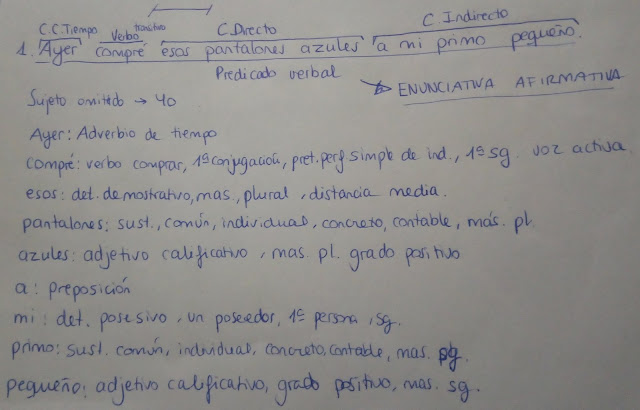 C.C.Tiempo Verbo transitivo C.Directo C.Indirecto
1. Ayer compré esos pantalones azules a mi primo pequeño.
Predicado verbal
ENUNCIATIVA AFIRMATIVA
Sujeto omitido → yo
Ayer: Adverbio de tiempo
compré: verbo comprar, 1ª conjugación, pret. perf. simple de ind., 1ª sg. voz activa.
esos: det. demostrativo, mas., plural, distancia media.
pantalones: sust., común, individual, concreto, contable, mas. pl.
azules: adjetivo calificativo, mas. pl. grado positivo
a: preposición
mi: det. posesivo, un poseedor, 1ª persona, sg.
primo: sust. común, individual, concreto, contable, mas. sg.
pequeño: adjetivo calificativo, grado positivo, mas. sg.